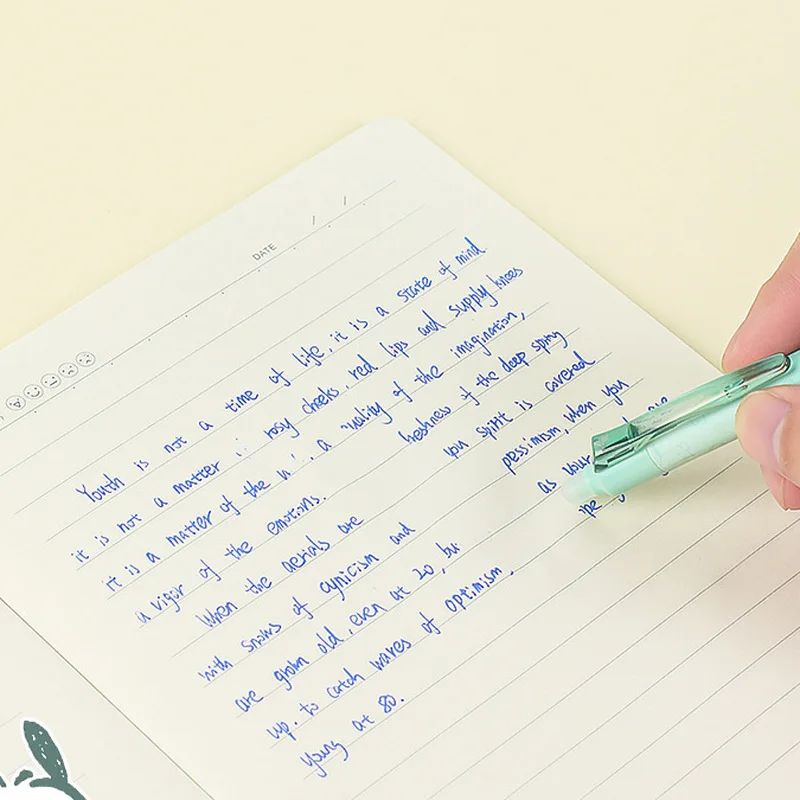 DATE / /
Youth is not a time of life, it is a state of mind
it is not a matter rosy cheeks, red lips and supply knees
it is a matter of the a uality of the imagination,
a vigor of the emotions. of the deep spring
When the aerials are you spirit is covered
with snows of cynicism and pessimism, when you
are grown old, even at 20, as your are
up. to catch waves of optimism,
young at 80.